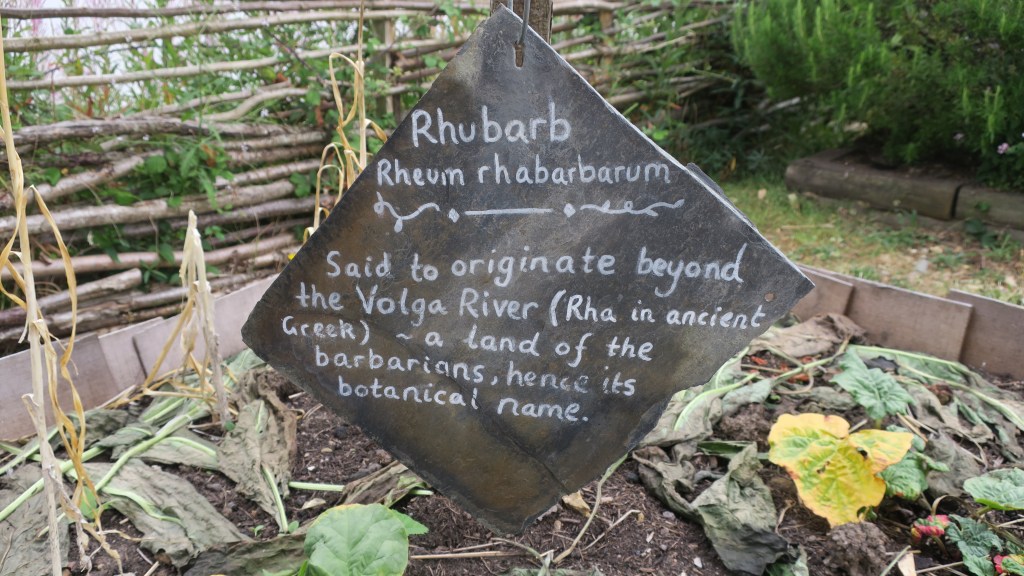 Rhubarb
Rheum rhabarbarum
Said to originate beyond
the Volga River (Rha in ancient
Greek) ~ a land of the
barbarians, hence its
botanical name.